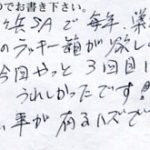 のでお書き下さい。
浜SAで毎年、楽
のラッキー箱が欲し
今回やっと3回目に
うれしかったです!
い事が有るハズで